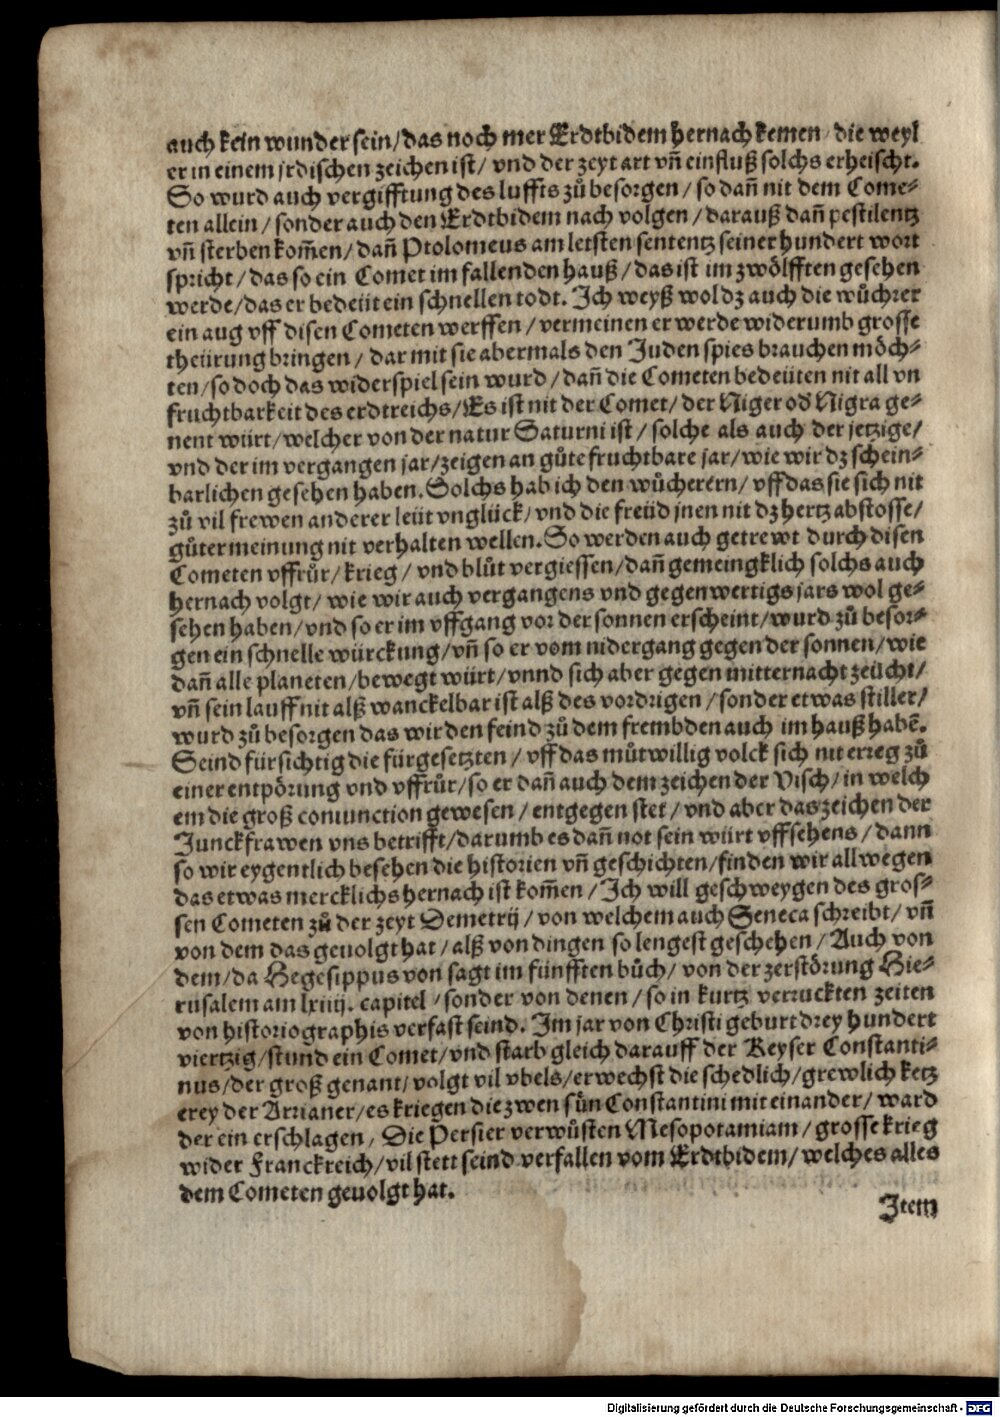 auch kein wunder sein/das noch mer Erdtbidem hernach kemen die weyl
er in einem jrdischen zeichen ist/ vnd der zeyt art vñ einfluß solchs erheischt.
So wurd auch vergifftung des luffts zů besorgen/ so dañ nit dem Come⸗
ten allein/ sonder auch den Erdtbidem nach volgen/ darauß dañ pestilentz
vñ sterben kom̃en/ dañ Ptolomeus am letsten sententz seiner hundert wort
spricht/ das so ein Comet im fallenden hauß/ das ist im zwölfften gesehen
werde/das er bedeüt ein schnellen todt. Ich weyß wol dz auch die wůchrer
ein aug vff disen Cometen werffen/ vermeinen er werde widerumb grosse
theürung bringen/ dar mit sie abermals den Juden spies brauchen möch⸗
ten/so doch das widerspiel sein wurd/ dañ die Cometen bedeüten nit all vn
fruchtbarkeit des erdtreichs/Es ist nit der Comet/ der Niger oď Nigra ge⸗
nent würt/welcher von der natur Saturni ist/ solche als auch der jetzige/
vnd der im vergangen jar/zeigen an gůte fruchtbare jar/wie wir dz schein⸗
barlichen gesehen haben. Solchs hab ich den wůcherern/ vff das sie sich nit
zů vil frewen anderer leüt vnglück/vnd die freüd jnen nit dz hertz abstosse/
gůter meinung nit verhalten wellen. So werden auch getrewt durch disen
Cometen vffrůr/krieg/ vnd blůt vergiessen/dañ gemeingklich solchs auch
hernach volgt/ wie wir auch vergangens vnd gegenwertigs jars wol ge⸗
sehen haben/vnd so er im vffgang vor der sonnen erscheint/wurd zů besor⸗
gen ein schnelle würckung/vñ so er vom nidergang gegen der sonnen/wie
dañ alle planeten/bewegt würt/vnnd sich aber gegen mitternacht zeücht/
vñ sein lauff nit alß wanckelbar ist alß des vordrigen/sonder etwas stiller/
wurd zů besorgen das wir den feind zů dem frembden auch im hauß habẽ.
Seind fürsichtig die fürgesetzten/ vff das můtwillig volck sich nit erreg zů
einer entpörung vnd vffrůr/so er dañ auch dem zeichen der Visch/in welch
em die groß coniunction gewesen/ entgegen stet/ vnd aber das zeichen der
Junckfrawen vns betrifft/darumb es dañ not sein würt vffsehens/ dann
so wir eygentlich besehen die historien vñ geschichten/finden wir allwegen
das etwas mercklichs hernach ist kom̃en/ Ich will geschweygen des gros⸗
sen Cometen zů der zeyt Demetrij/ von welchem auch Seneca schreibt/ vñ
von dem das geuolgt hat/ alß von dingen so lengest geschehen/ Auch von
dem/da Hegesippus von sagt im fünfften bůch/ von der zerstörung Hie⸗
rusalem am lxiiij. capitel/ sonder von denen/ so in kurtz verruckten zeiten
von historiographis verfast seind. Im jar von Christi geburt drey hundert
viertzig/stund ein Comet/vnd starb gleich darauff der Keyser Constanti⸗
nus/der groß genant/ volgt vil vbels/erwechst die schedlich/grewlich ketz
erey der Arrianer/es kriegen die zwen sün Constantini mit einander/ ward
der ein erschlagen/ Die Persier verwüsten Mesopotamiam/ grosse krieg
wider Franckreich/vil stett seind verfallen vom Erdtbidem/welches alles
dem Cometen geuolgt hat.
Item
Digitalisierung gefördert durch die Deutsche Forschungsgemeinschaft - DFG